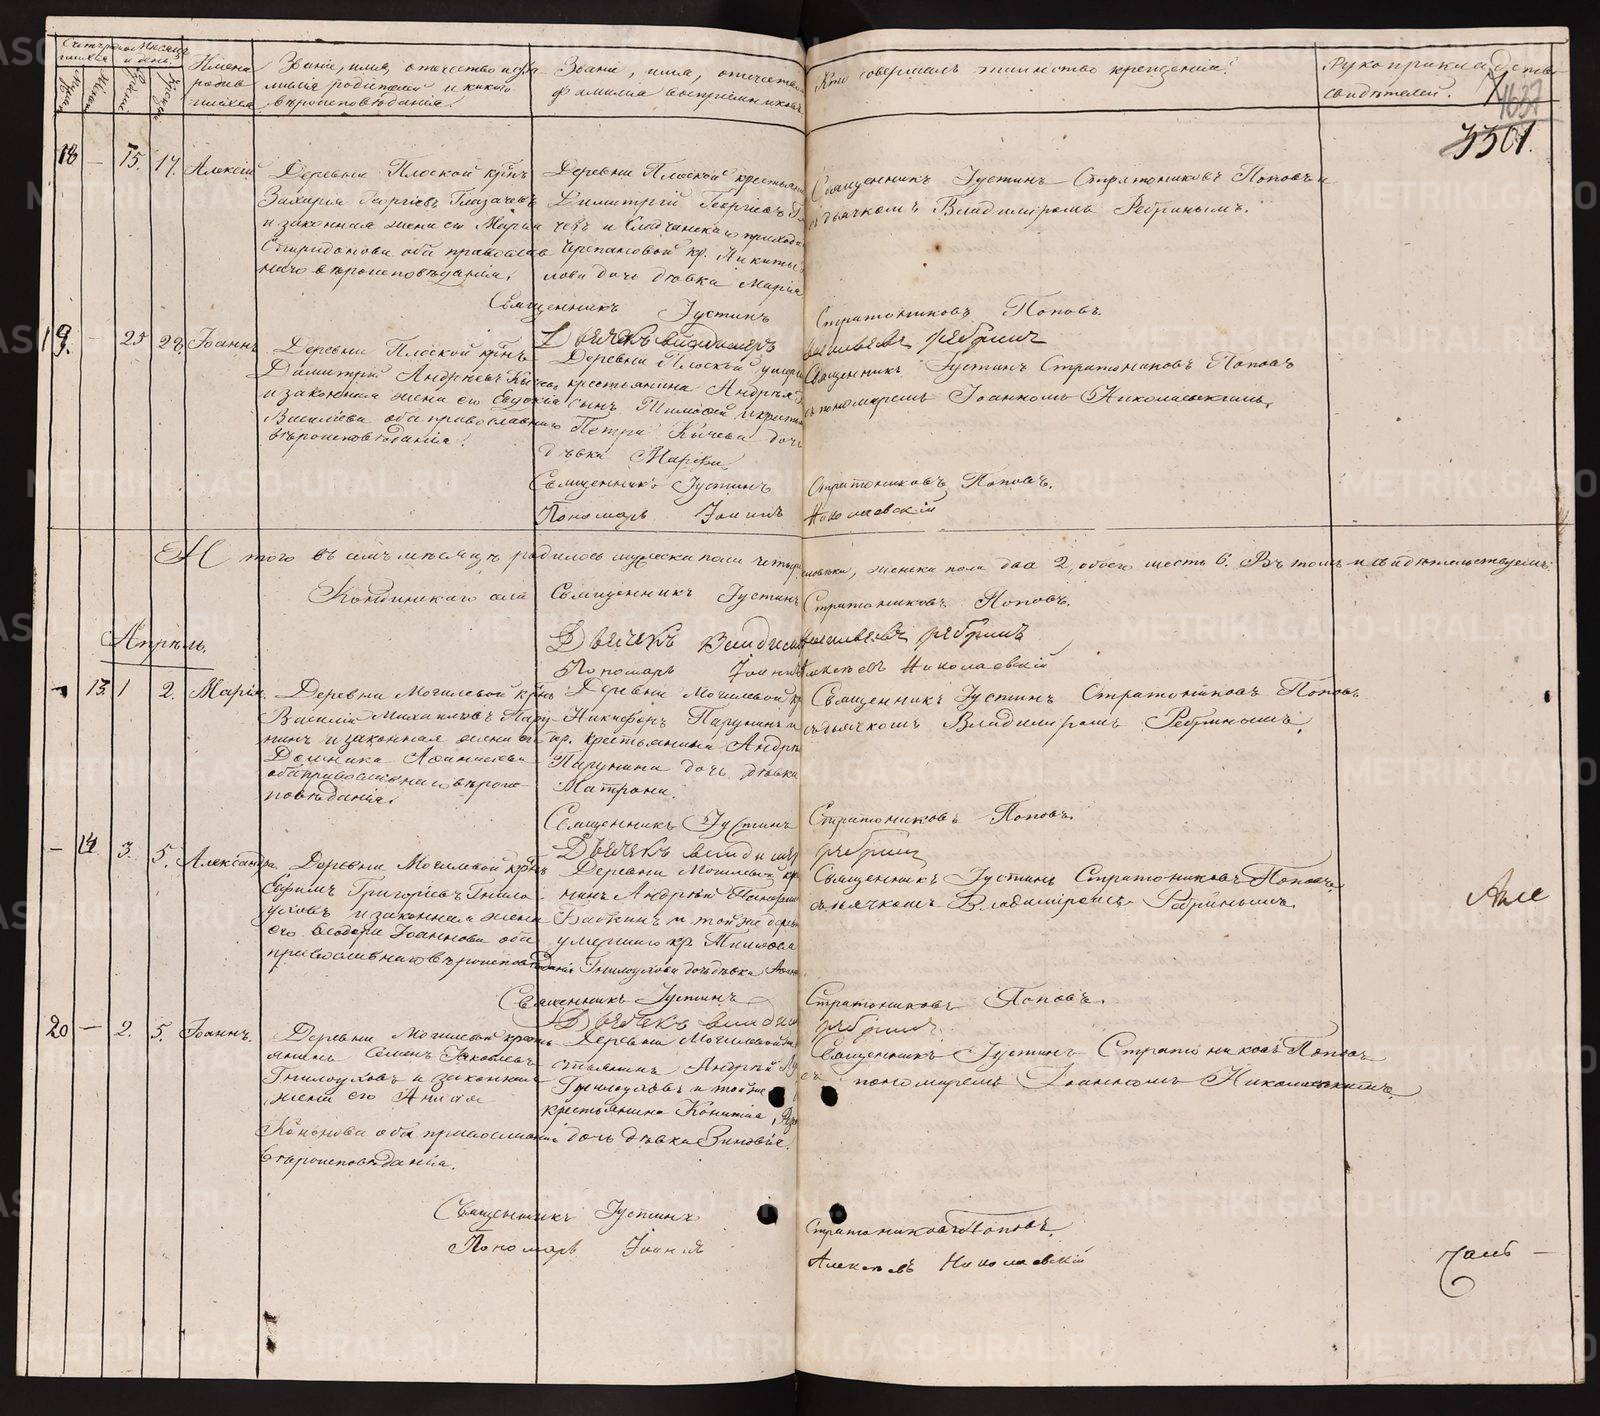 Счетъ родившихся
Мужеска
Женска
Месяцъ и день
Рожденія
Крещенія
Имена родившихся
Званіе, имя, отечество и фамилія родителей и какого вѣроисповѣданія.
Званіе, имя, отечество фамилія воспріемниковъ
Кто совершалъ таинство крещенія?
Рукоприкладство свидѣтелей.
1637
18 — 15. 17. Алексій
Деревни Плоской крѣн
Захарій Георгіевъ Глазачевъ
и законная жена его Марія
Спиридонова оба православ
наго вѣроисповѣданія.
Деревни Плоской крестьян
Димитрій Георгіевъ Гла
чевъ и приходa
Черепановой кр. Никиты
лова дочь дѣвка Марія
Священникъ Іустинъ Стратониковъ Поповъ и
дьячкомъ Владиміромъ Ребринымъ.
Священникъ Іустинъ Стратониковъ Поповъ
Дьячекъ Владимеръ Васильевъ Ребринъ
19. — 25 28. Іоаннъ
Деревни Плоской крѣн
Димитрій Андреевъ
и законная жена его Евдокія
Васильева оба православнаго
вѣроисповѣданія.
Деревни Плоской умерш
крестьянина Андрея
сынъ Тимофей и крест
Петра Кычева дочь
дѣвка Марѳа
Священникъ Іустинъ Стратониковъ Поповъ
съ пономаремъ Іоанномъ Николаевскимъ.
Священникъ Іустинъ Стратониковъ Поповъ.
Пономарь Іоаннъ Николаевскій
И того въ семъ мѣсяцѣ родилось мужеска пола четыре человѣка, женска пола два 2, обоего шесть 6. Въ томъ и свидѣтельствуемъ:
села Священникъ Іустинъ Стратониковъ Поповъ.
Дьячекъ Владимеръ Васильевъ Ребринъ
Пономарь Іоаннъ Алексѣевъ Николаевскій
Апрѣль.
— 13. 1 2. Марія.
Деревни Могилевой крѣн
Василій Михаиловъ Пару
нинъ и законная жена его
Домника Аѳанасьева
оба православнаго вѣроис
повѣданія.
Деревни Могилевой кр
Никифоръ Парунинъ и
кр. крестьянина Андрея
Парунина дочь дѣвка
Матрона.
Священникъ Іустинъ Стратониковъ Поповъ
съ дьячкомъ Владиміромъ Ребринымъ.
Священникъ Іустинъ Стратониковъ Поповъ.
Дьячекъ Владимеръ Ребринъ
— 14 3. 5. Александра.
Деревни Могилевой крѣн
Ефимъ Григорьевъ Гнило
уховъ и законная жена
его Ѳеодора Іоаннова оба
православнаго вѣроисповѣданія
Деревни Могилевой кр
нинъ Андрей
Бабкинъ и той же дерев
умершаго кр. Тимофея
Гнилоухова дочь дѣвка Анна
Священникъ Іустинъ Стратониковъ Поповъ
съ дьячкомъ Владиміромъ Ребринымъ.
Священникъ Іустинъ Стратониковъ Поповъ.
Дьячекъ Владимеръ Ребринъ
20 — 2. 5. Іоаннъ.
Деревни Могилевой кресть
янинъ Семенъ Яковлевъ
Гнилоуховъ и законная
жена его Анисія
Кононова оба православнаго
вѣроисповѣданія.
Деревни Могилевой
стьянинъ Андрей
Гнилоуховъ и той же
крестьянина
дочь дѣвка Зиновія.
Священникъ Іустинъ Стратониковъ Поповъ
съ пономаремъ Іоанномъ Николаевскимъ.
Священникъ Іустинъ Стратониковъ Поповъ.
Пономарь Іоаннъ Алексѣевъ Николаевскій
METRIKI.GASO-URAL.RU